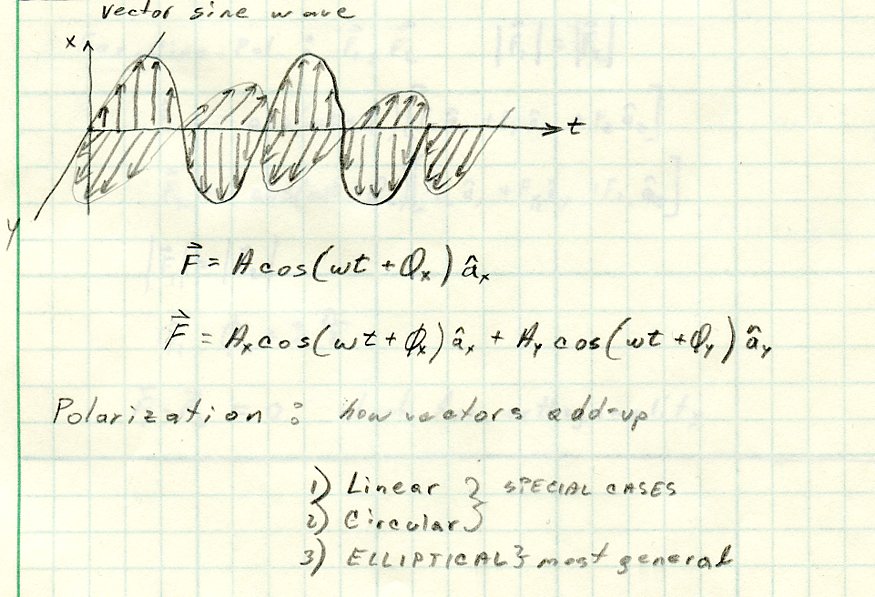 vector sine wave
x
t
y
F⃗ = A cos(ωt + Φₓ) âₓ
F⃗ = Aₓ cos(ωt + Φₓ) âₓ + Aᵧ cos(ωt + Φᵧ) âᵧ
Polarization : how vectors add-up
1) Linear } SPECIAL CASES
2) Circular }
3) ELLIPTICAL } most general